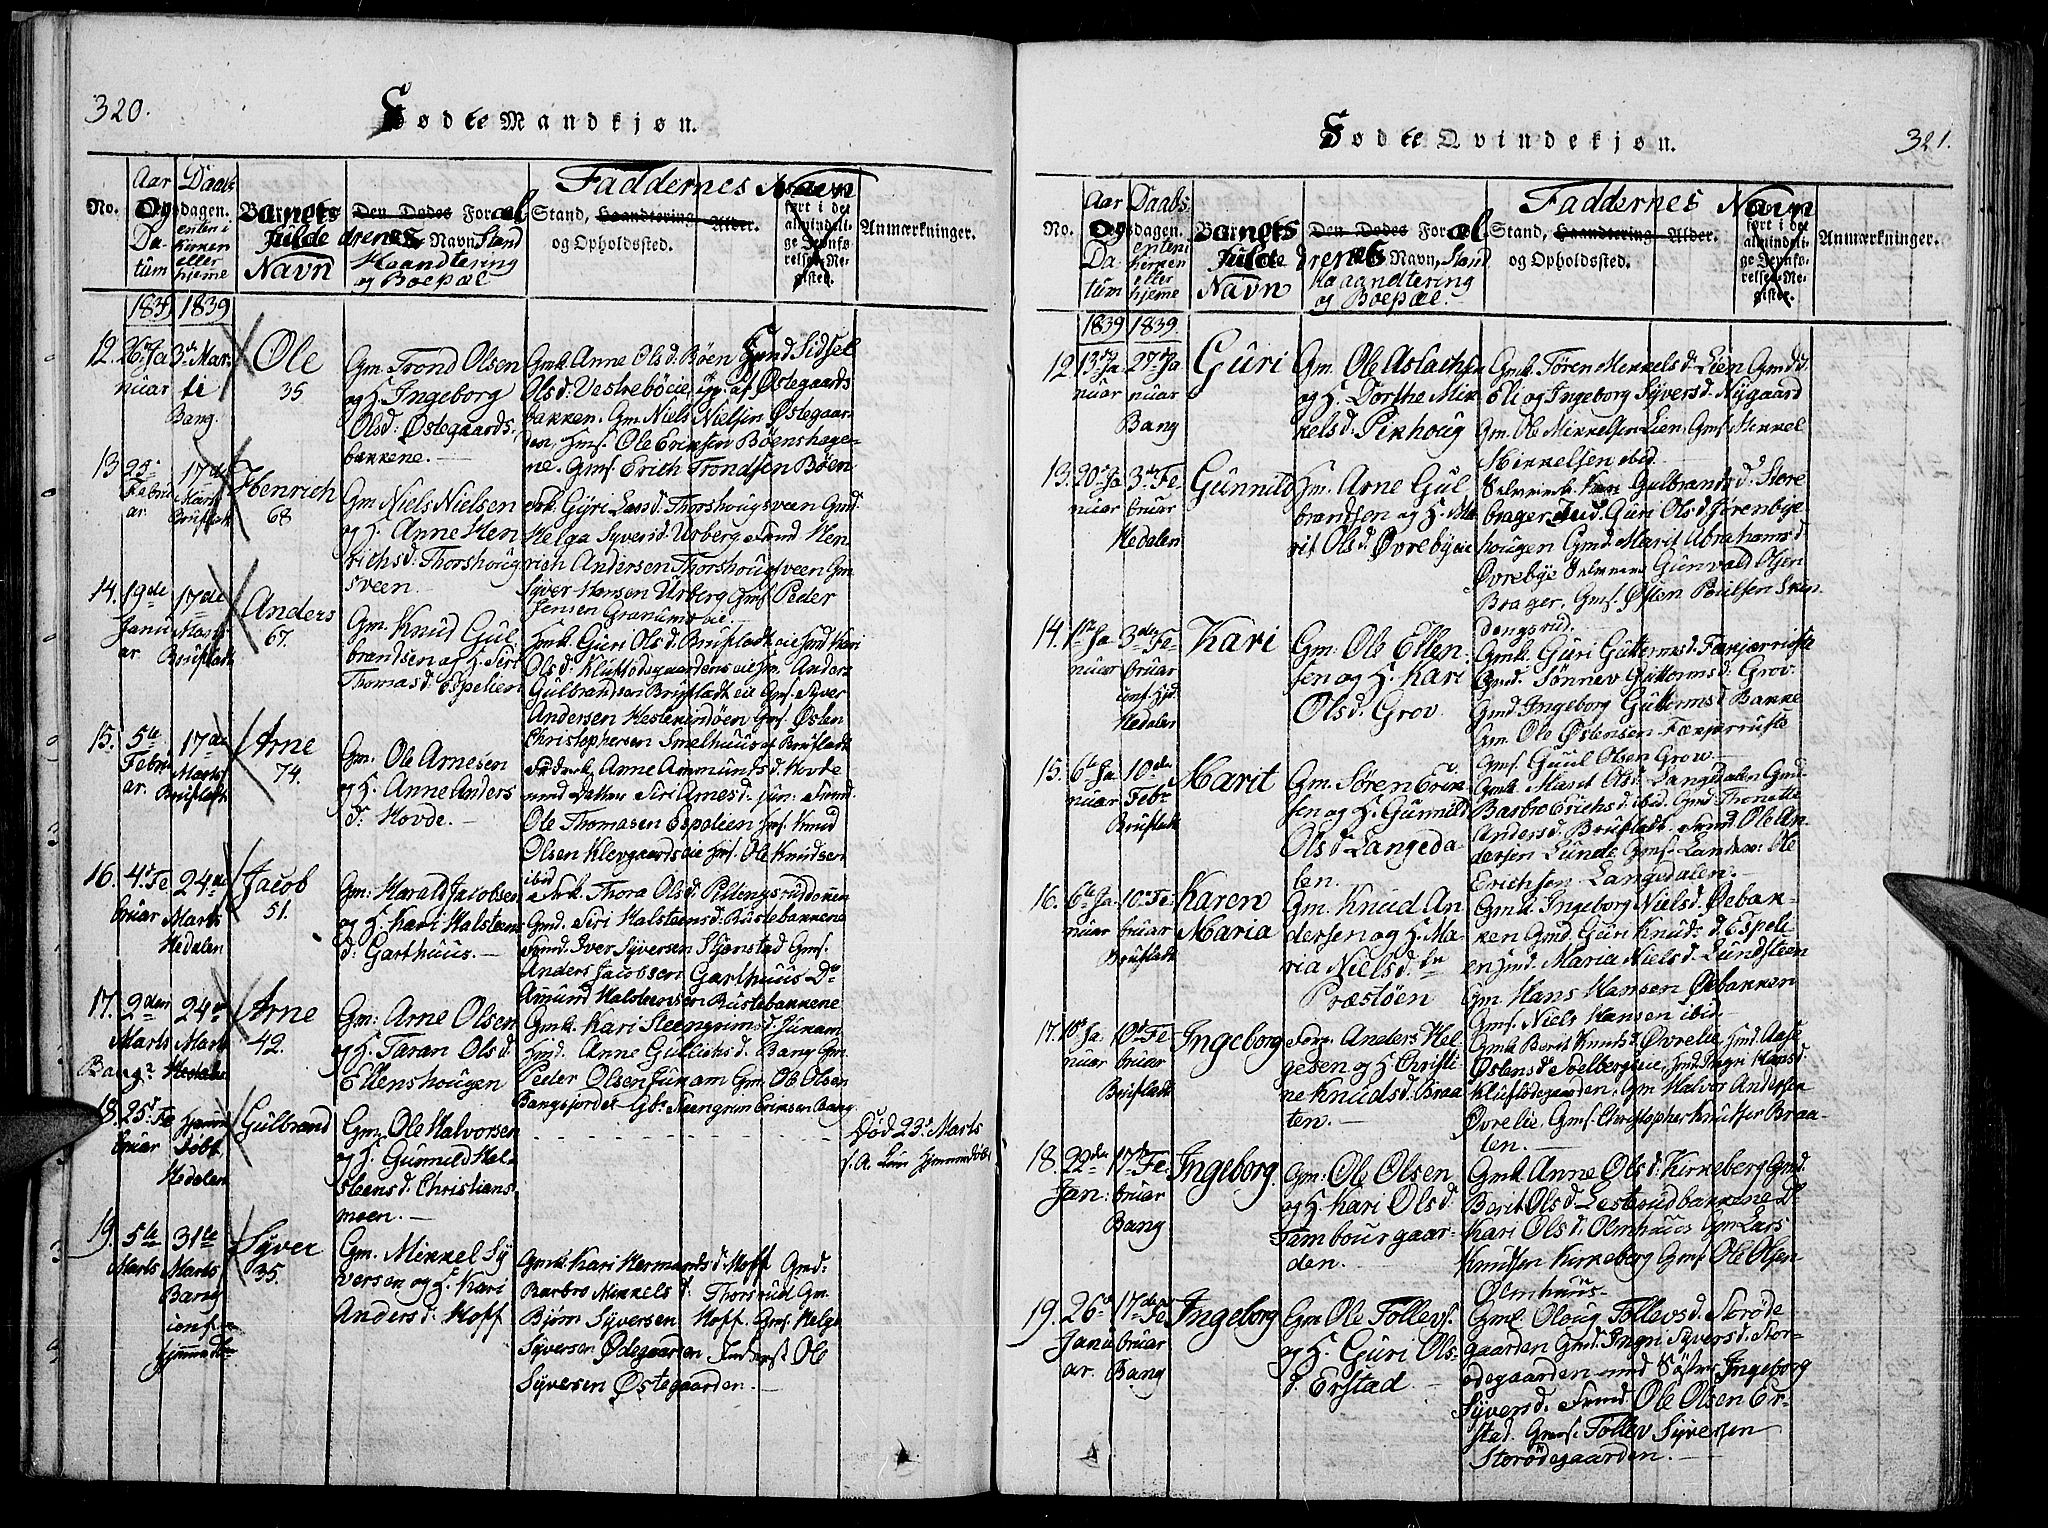 320.
Fødte Mandkjøn.
No.
Aar Og Datum
Daabsdagen. enten i Kirken eller hjeme
Barnets fulde Navn
Den Dødes Forældrenes Navn Stand Haandtering og Boepæl
Faddernes Navn
Stand, Haandtering Alder.
og Opholdssted.
Anmærkninger.
1839 1839
12. 26de Januar 3de Marti Bang.
Ole
35
Gm. Trond Olsen
og H. Ingeborg
Olsd: Østegaards-
bakkene.
Gmk Anne Olsd. Bøen Gmd Sidsel
Olsd. Vestrebøeie, og: af Østegaards
bakken. Gm. Niels Nielsen Østegaar-
den, Hmf. Ole Eriksen Bøenshage-
ne. Gmf. Erich Trondsen Bøen
13. 25. Februar 17de Marts Bruflat
Henrich
68
Gm Niels Nielsen
og H. Anne Hen
richsd: Thorshoug
sveen
Gyri Larsd. Thorshougsveen Gmd.
Helga Syversd. Urberg Hen
rich Andersen Thorshougsveen Gm
Syver Hansen Urberg Gmf. Peder
Jensen Granumseie
14. 19de Januar 17de Marts Bruflat
Anders
67.
Gm. Knud Gul
brandsen af H. Siri
Thomasd: Espelien
Hmk: Guri Olsd. Bruflat eie Hmd Kari
Olsd. Kluftødegaardens eie Hm. Anders
Gulbrandsen Bruflat eie Gmf. Syver
Andersen Hestekindøen Gmf. Østen
Christophersen Bruflat
15. 5te Februar 17de Marts Bruflat
Arne
74.
Gm. Ole Arnesen
og H. Anne Anders
d. Hovde.
Anne Ammundsd. Hovde
Siri Arnesd.
Ole Thomasen Espelien Hmf. Knud
Olsen Klevgaards eie Hmf. Ole Knudsen
ibid
16. 4de Februar 24de Marts Hedalen
Jacob
51.
Gm: Harald Jacobsen
og H. Kari Halsteens
d. Garthuus.
Thora Olsd.
Gmd. Siri Halsteensd. Rustebakkene
Iver Syversen Skjenstad Gmf.
Anders Jacobsen Garthuus Do
Amund Halsteensen Rustebakkene
17. 2den Marts Bang 24de Marts Hedalen
Arne
42.
Gm: Arne Olsen
og H. Taran Olsd.
Ellenshougen
Gmk. Kari Steengrimsd. Junam
Hmd. Anne Gulliksd. Bang Gm.
Peder Olsen Junam Gm. Ole Olsen
Bangsjordet Gbr Steengrim Eriksen Bang
18. 25de Februar Hjemmedøbt Hedalen
Gulbrand
Gm. Ole Halvorsen
og H. Gunnild Hal-
steensd: Christians
moen.
Død 23de Marts
19. 5te Marts 31te Marts Bang conf. hjemmedbt
Syver
35.
Gm. Mikkel Sy
versen og H. Kari
Anders d. Hoff
Gmk. Kari Hermandsd. Hoff Gmd.
Barbro Mikkelsd. Thorsrud Gm.
Bjørn Syversen Hoff Gmf. Helge
Syversen Ødegaarden Ole
Syversen Østegaarden.
321.
Fødte Qvindekjøn.
No.
Aar Og Datum
Daabsdagen. enten i Kirken eller hjeme
Barnets fulde Navn
Den Dødes Forældrenes Navn, Stand Haandtering og Boepæl.
Faddernes Navn
Stand, Haandtering Alder.
og Opholdssted.
Anmærkninger.
1839 1839.
12 13de Januar 27de Januar Bang
Guri
Gm. Ole Aslachsen
og H. Dorthe Mik
kelsd. Pikhoug
Gmk. Jøren Mikkelsd. Lien Gmd
Eli og Ingeborg Syversd. Nygaard
Gm. Ole Mikkelsen Lien, Gmf. Mikkel
Mikkelsen ibid.
13. 20de Januar 3de Februar Hedalen
Gunnild
Hm. Arne Gul
brandsen og H. Ma
rit Olsd. Øvrebyeie
Gulbrandsd. Store
brager Guri Olsd. Jørenbye
hougen Gmd. Marit Abrahamsd
Øvrebye Gunvald Olsen
Brager, Gmf. Østen Poulsen Skin
dengsrud.
14. 1te Januar 3de Februar conf. Hjd. Hedalen
Kari
Gm: Ole Ellen
sen og H. Kari
Olsd. Grov.
Gmk. Guri Guttormsd.
Gmd. Sønnev Guttormsd. Grov.
Gmd Ingeborg Guttormsd. Bakke
Gm. Ole Østensen
Gmf. Guul Olsen Grov
15. 6te Januar 10de Febr Bruflat
Marit
Gm. Søren Erik
sen og H. Gunnild
Olsd. Langeda
len.
Gmk. Marit Olsd. Langedalen Gmd.
Barbro Erichsd. ibid. Gmd Thonette
Andersd. Bruflat. Ole An
dersen Lunde Gmf. Ole
Erichsen Langedalen.
16. 6te Januar 10de Februar Bruflat
Karen
Maria
Gm. Knud An
dersen og H. Ma
ria Nielsd.
Præstøen
Gmk. Ingeborg Nielsd. Øebak-
ken Gmd Guri Knudsd. Espeli-
en Hmd. Maria Nielsd. Lundsteen
Gm. Hans Hansen Øebakken
Gmf. Niels Hansen ibid.
17. 10de Januar 10de Februar Bruflat
Ingeborg
Anders Hel
gesen og H. Christi
ne Knudsd. Braa
ten.
Gmk Berit Knudsd. Øvrelie, Hmd. Aase
Østensd. Soelbergseie, Hmd. Ingri Hansd.
Kluftødegaarden, Gm. Halvor Andersen
Øvrelie, Gmf. Christopher Knudsen Braa-
ten.
18. 22de Jan: 17de Februar Bang
Ingeborg
Gm: Ole Olsen
og H. Kari Olsd.
Tambourgaar-
den.
Gmk. Anne Olsd: Kirkeberg Gmd.
Berit Olsd. Lesterudbakkene Do
Kari Olsd. Olmhuus Gm. Lars
Knudsen Kirkeberg Gmf. Ole Olsen
Olmhuus.
19. 26de Januar 17de Februar Bang
Ingeborg
Gm Ole Tollevs.
og H. Guri Ols-
d. Erstad
Gmk. Oloug Tollevsd. Storøde
gaarden Gmd. Ingri Syversd. Stor-
ødegaarden med Søster Ingeborg
Syversd. Ole Olsen Er-
stad. Gmf. Tollev Syversen
Storødegaarden.